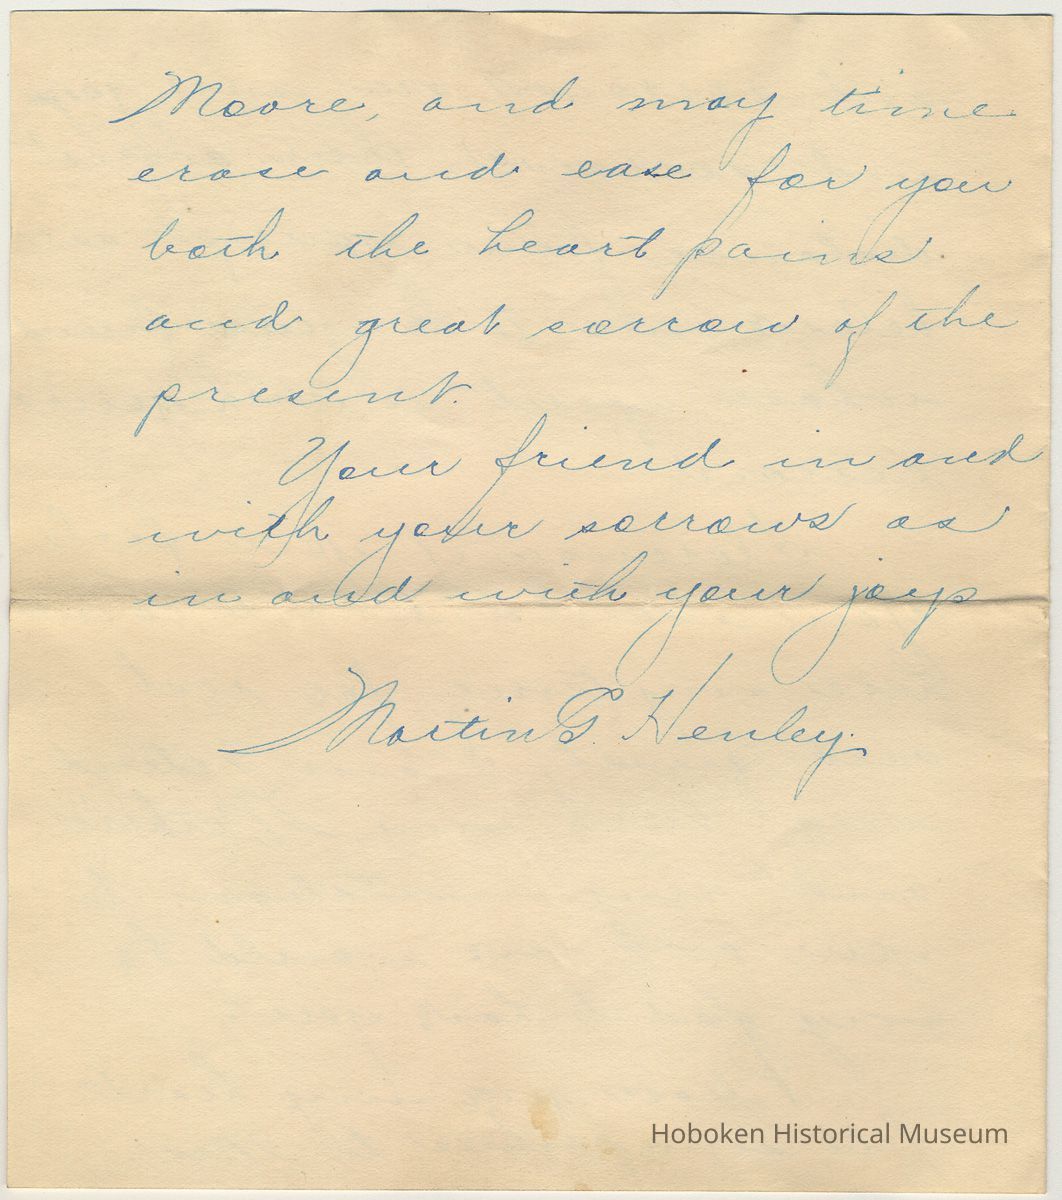 Moore, and may time
erase and ease for you
both the heart pains
and great sorrow of the
present.
Your friend in and
with your sorrows as
in and with your joys
Martin G. Henley.
Hoboken Historical Museum